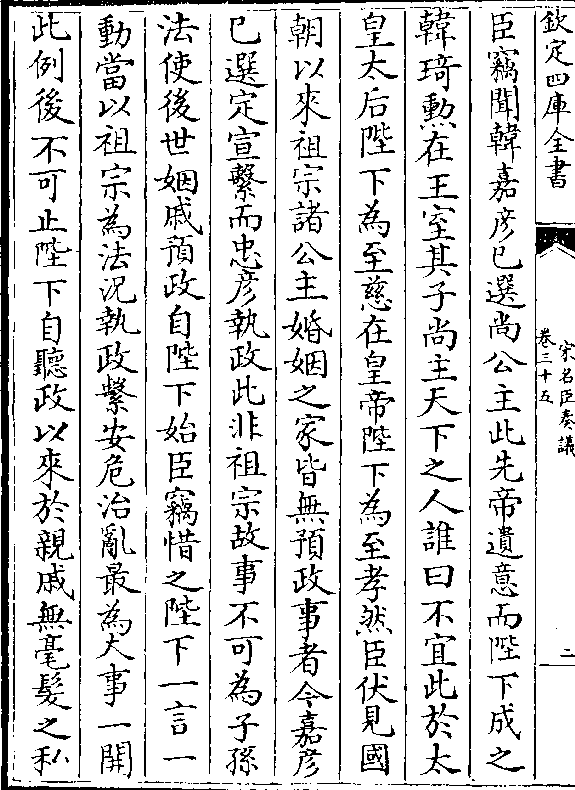 欽定四庫全書
宋名臣奏議
卷三十五
二
臣竊聞韓嘉彦已選尚公主此先帝遺意而陛下成之
韓琦勲在王室其子尚主天下之人誰曰不宜此於太
皇太后陛下為至慈在皇帝陛下為至孝然臣伏見國
朝以來祖宗諸公主婚姻之家皆無預政事者今嘉彦
已選定宣繫而忠彦執政此非祖宗故事不可為子孫
法使後世姻戚預政自陛下始臣竊惜之陛下一言一
動當以祖宗為法況執政繫安危治亂最為大事一開
此例後不可止陛下自聽政以來於親戚無毫髮之私